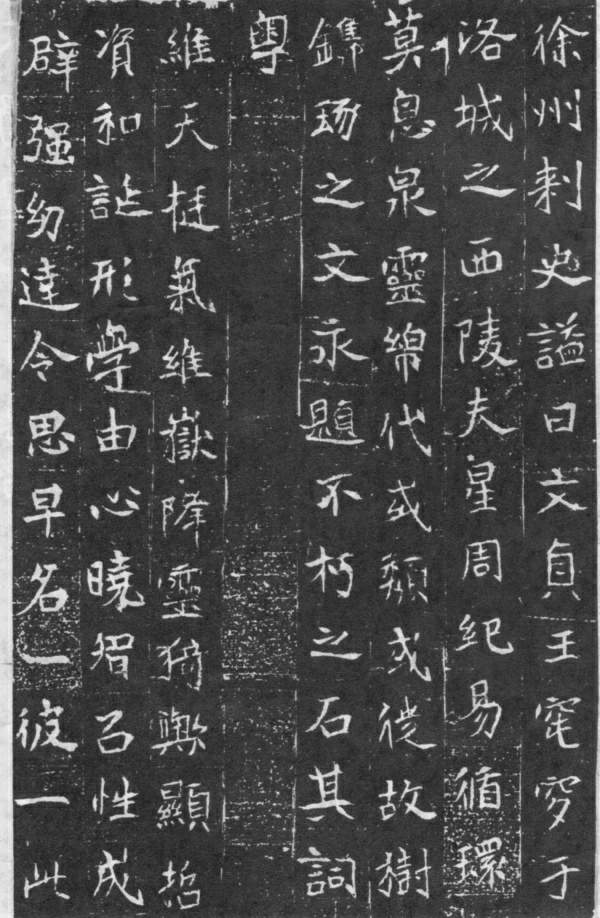 徐州刾史謚曰文貞王窀穸于
洛城之西陵夫星周紀易循環
莫息泉靈綿代或頹或徙故樹
鐫琢之文永題不朽之石其詞
粤
維天挺氣維嶽降靈猗歟顯哲
資和誕形學由心曉智㠯性成
辟强幼達令思早名一彼一此